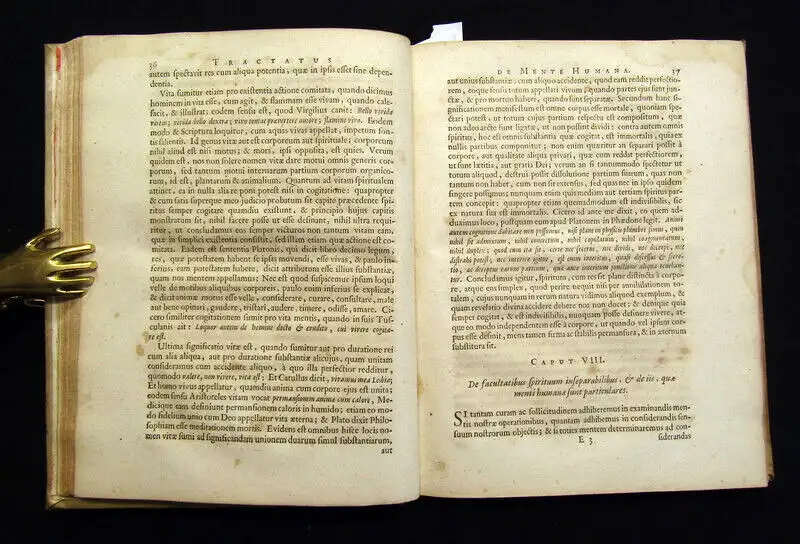 36 TRACTATUS
autem spectavit res cum aliqua potentia, quæ in ipsis esset sine depen-
dentia.
Vita sumitur etiam pro existentia actione comitata, quando dicimus
hominem in vita esse, cum agit, & flammam esse vivam, quando cale-
facit, & illustrat; eodem sensu est, quod Virgilius canit: Bello vivida
virtus: vivida bello dextra; vivo tentat prævertere amore; flamine vivo. Eodem
modo & Scriptura loquitur, cum aquas vivas appellat, impetum fon-
tis salientis. Id genus vitæ aut est corporeum aut spirituale; corporeum
nihil aliud est nisi motus; & mors, ipsi opposita, est quies. Verum
quidem est, nos non solere nomen vitæ dare motui omnis generis cor-
porum, sed tantum motui internarum partium corporum organico-
rum, id est, plantarum & animalium. Quantum ad vitam spiritualem
attinet, ea in nulla alia re poni potest nisi in cogitatione: quapropter
& cum satis superque meo judicio probatum sit capite præcedente spi-
ritus semper cogitare quandiu existunt, & principio hujus capitis
monstratum sit, nihil facere posse ut esse desinant, nihil ultra requi-
ritur, ut concludamus eos semper victuros non tantum vitam eam,
quæ in simplici existentia consistit, sed illam etiam quæ actione est co-
mitata. Eadem est sententia Platonis, qui dicit libro decimo legum,
res, quæ potestatem habent se ipsas movendi, esse vivas, & paulo in-
ferius, eam potestatem habere, dicit attributum esse illius substantiæ,
quam nos mentem appellamus: Nec est quod suspicemur ipsum loqui
velle de motibus aliquibus corporeis, paulo enim inferius se explicat,
& dicit animæ motus esse velle, considerare, curare, consultare, male
aut bene opinari, gaudere, tristari, audere, timere, odisse, amare. Ci-
cero similiter cogitationem sumit pro vita mentis, quando in suis Tus-
culanis ait: Loquor autem de homine docto & erudito, cui vivere cogita-
re est.
Ultima significatio vitæ est, quando sumitur aut pro duratione rei
cum alia aliqua, aut pro duratione substantiæ alicujus, quam unitam
consideramus cum accidente aliquo, à quo illa perfectior redditur,
quomodo valere, non vivere, vita est; Et Catullus dicit, vivamus mea Lesbia;
Et homo vivus appellatur, quamdiu anima cum corpore ejus est unita;
eodem sensu Aristoteles vitam vocat permansionem animæ cum calore, Me-
dicique eam desiniunt permansionem caloris in humido; etiam eo mo-
do fidelium unio cum Deo appellatur vita æterna; & Plato dixit Philo-
sophiam esse meditationem mortis. Evidens est omnibus hisce locis no-
men vitæ sumi ad significandam unionem duarum simul substantiarum,
aut
DE MENTE HUMANA. 37
aut unius substantiæ, cum aliquo accidente, quod eam reddit perfectio-
rem, eoque sensu totum appellari vivum, quando partes ejus sunt jun-
ctæ, & pro mortuo haberi, quando sunt separatæ. Secundum hanc si-
gnificationem manifestum est omne corpus esse mortale, quoniam spe-
ctari potest, ut totum cujus partium respectu est compositum, quæ
non adeo arcte sunt ligatæ, ut non possint dividi: contra autem omnis
spiritus, hoc est omnis substantia quæ cogitat, est immortalis, quia ex
nullis partibus componitur, non enim quæritur an separari possit à
corpore, aut qualitate aliqua privari, quæ eum reddat perfectiorem,
ut sunt lætitia, aut gratia Dei; verum an is tantummodo spectetur ut
totum aliquod, destrui possit dissolutione partium suarum, quas non
tantum non habet, cum non sit extensus, sed quas nec in ipso quidem
fingere possumus; nunquam enim quis mediam aut tertiam spiritus par-
tem concepit: quapropter etiam quemadmodum est indivisibilis, sic
ex natura sua est immortalis. Cicero id ante me dixit, eo quem ad-
duximus loco, postquam eum apud Platonem in Phædone legit. Animi
autem cognitione dubitare non possumus, nisi plane in physicis plumbei simus, quin
nihil sit admixtum, nihil concretum, nihil copulatum, nihil coagmentatum,
nihil duplex; quod cum ita sit, certe nec secerni, nec dividi, nec decerpi, nec
distrahi possit, nec interire igitur, est enim interitus, quasi discessus & secre-
tio, ac direptus earum partium, quæ ante interitum junctione aliqua tenebantur.
Concludamus igitur, spiritum, cum res sit plane distincta à corpo-
re, atque ens simplex, quod perire nequit nisi per annihilationem to-
talem, cujus nunquam in rerum natura vidimus aliquod exemplum, &
quam revelatio divina accidere debere nos non docet; & denique quia
semper cogitat, & est indivisibilis, nunquam posse desinere vivere, at-
que eo modo independentem esse à corpore, ut quando vel ipsum cor-
pus esse desinit, mens tamen firma ac stabilis permansura, & in æternum
substitura sit.
CAPUT VIII.
De facultatibus spirituum inseparabilibus, & de iis, quæ
menti humanæ sunt particulares.
SI tantam curam ac sollicitudinem adhiberemus in examinandis men-
tis nostræ operationibus, quantam adhibemus in considerandis sen-
suum nostrorum objectis; & si toties mentem determinaremus ad con-
E 3 siderandas